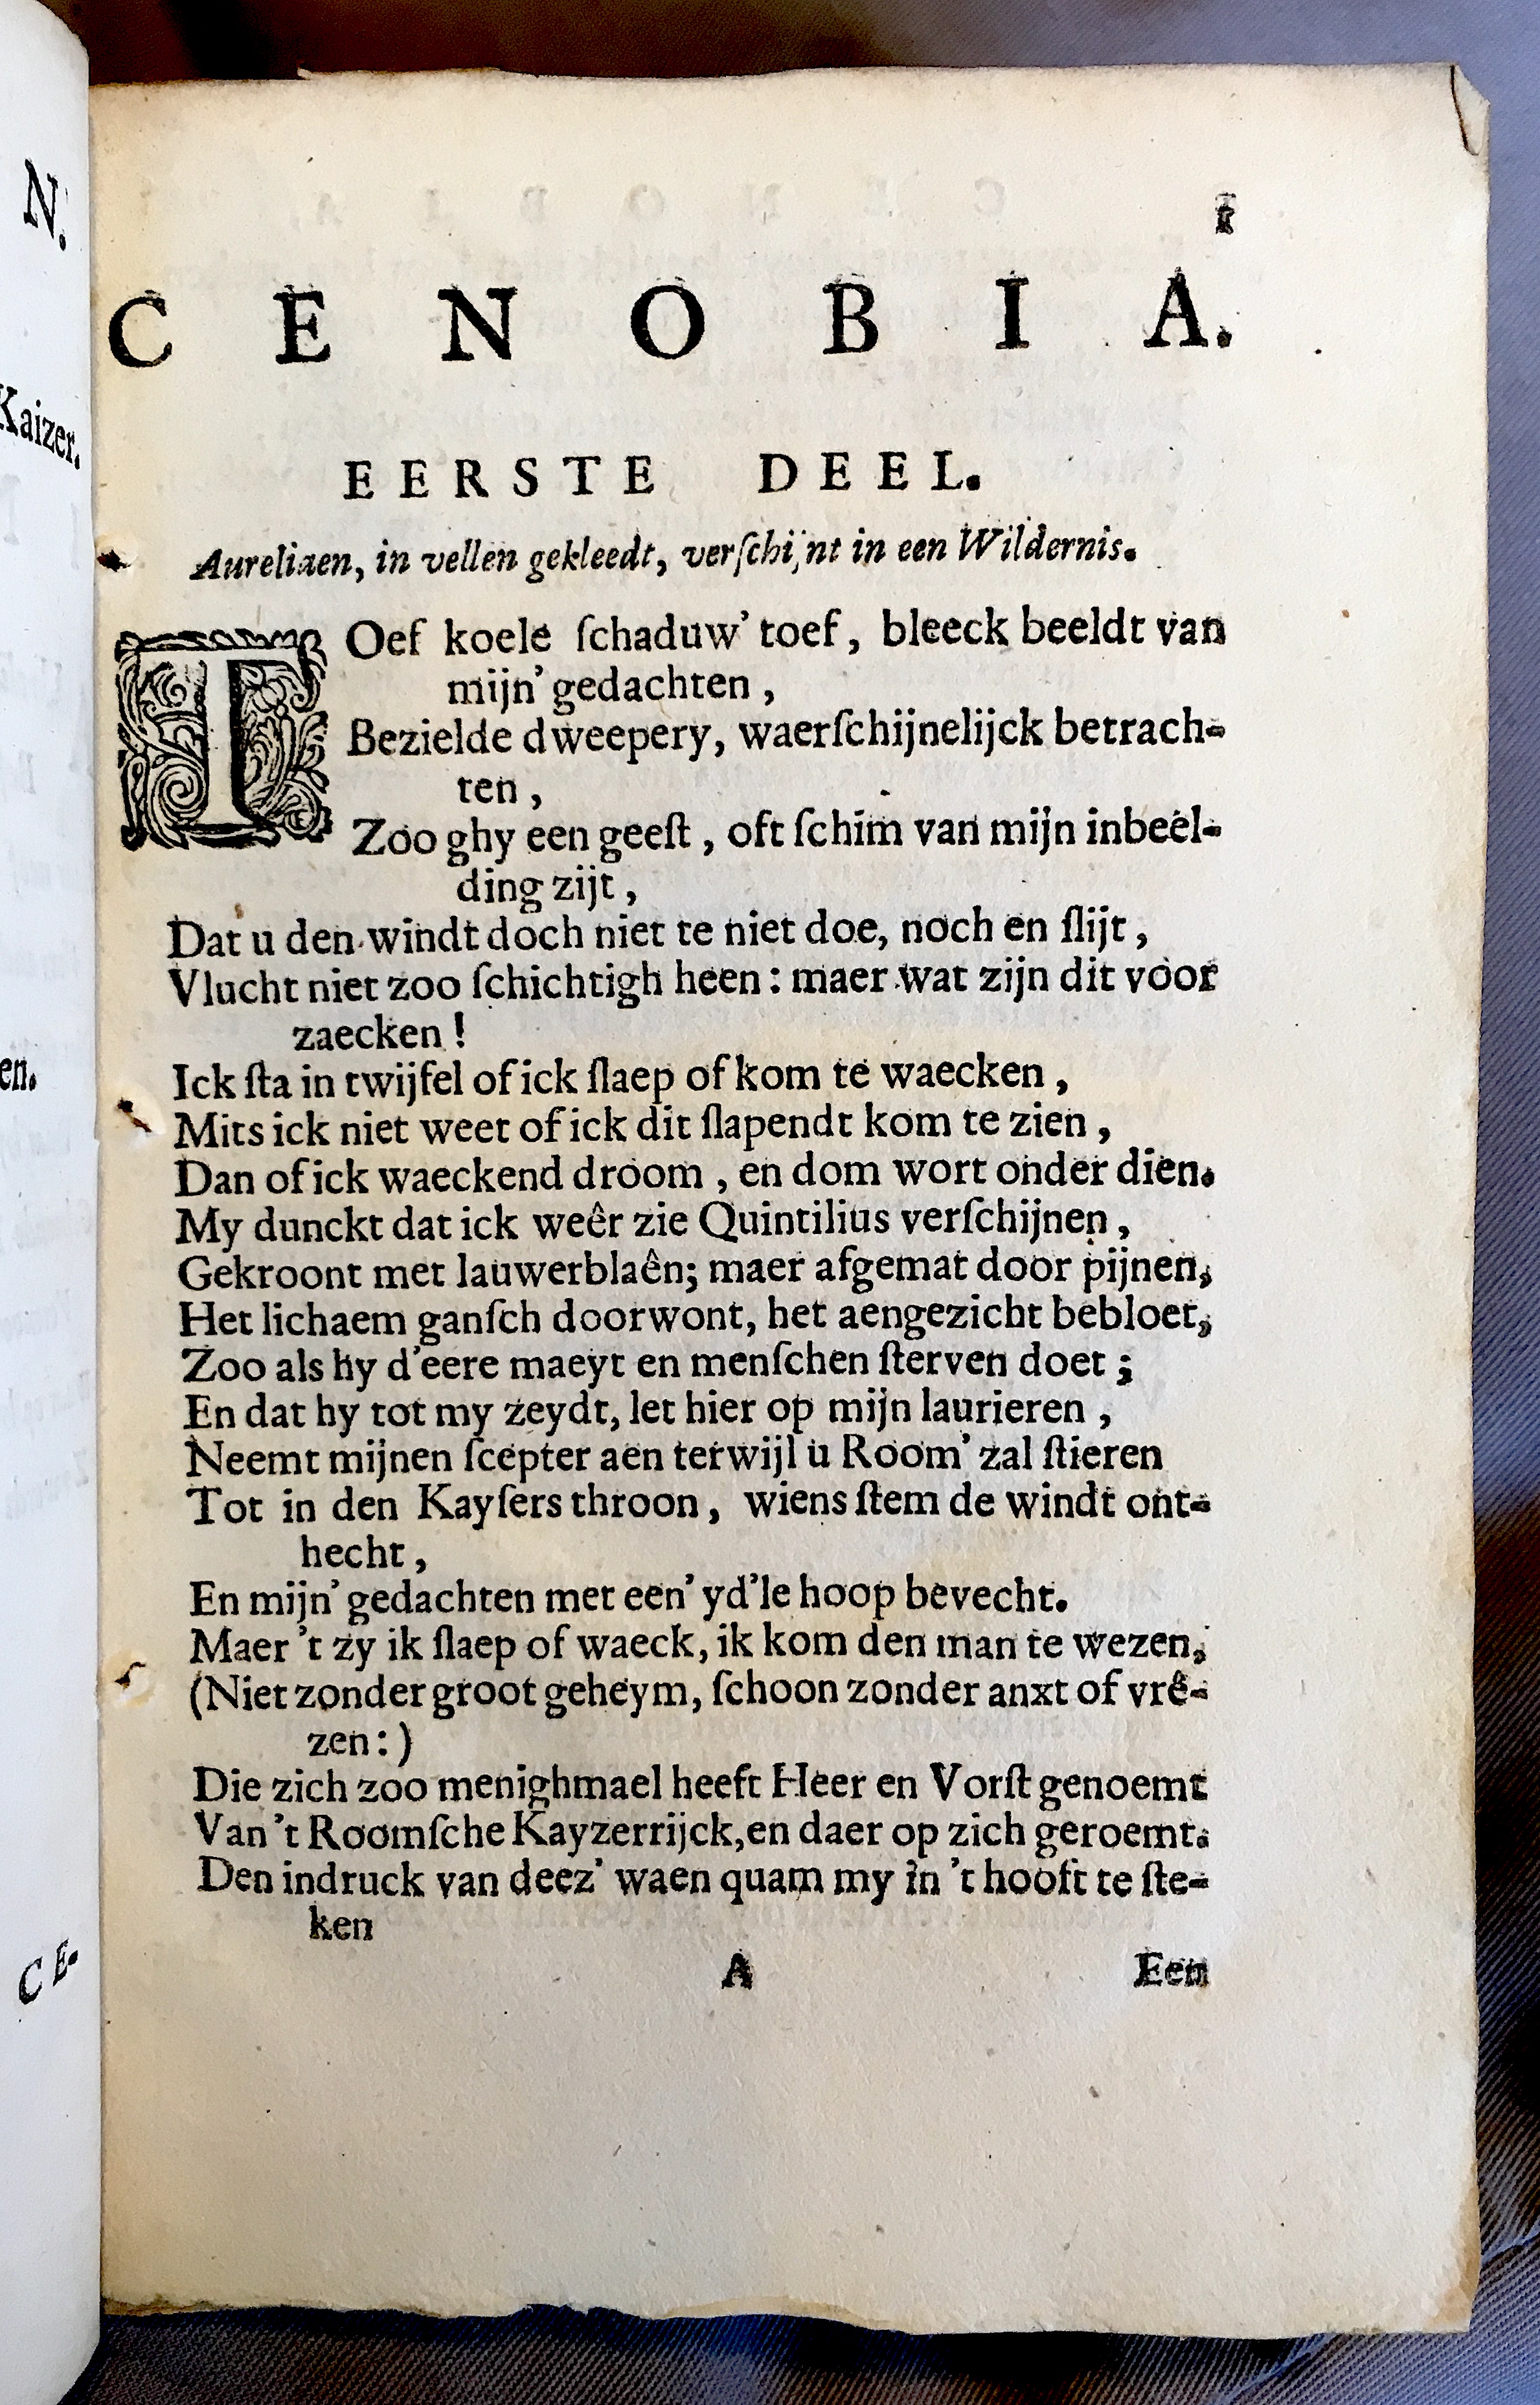 N.
Kaizer.
en.
CE.
1
CENOBIA.
EERSTE DEEL.
Aureliaen, in vellen gekleedt, verſchijnt in een Wildernis.
TOef koele ſchaduw' toef, bleeck beeldt van
mijn' gedachten,
Bezielde dweepery, waerſchijnelijck betrach-
ten,
Zoo ghy een geeſt, oft ſchim van mijn inbeel-
ding zijt,
Dat u den windt doch niet te niet doe, noch en ſlijt,
Vlucht niet zoo ſchichtigh heen: maer wat zijn dit voor
zaecken!
Ick ſta in twijfel of ick ſlaep of kom te waecken,
Mits ick niet weet of ick dit ſlapendt kom te zien,
Dan of ick waeckend droom, en dom wort onder dien.
My dunckt dat ick weêr zie Quintilius verſchijnen,
Gekroont met lauwerblaên; maer afgemat door pijnen,
Het lichaem ganſch doorwont, het aengezicht bebloet,
Zoo als hy d'eere maeyt en menſchen ſterven doet;
En dat hy tot my zeydt, let hier op mijn laurieren,
Neemt mijnen ſcepter aen terwijl u Room' zal ſtieren
Tot in den Kayſers throon, wiens ſtem de windt ont-
hecht,
En mijn' gedachten met een' yd'le hoop bevecht.
Maer 't zy ik ſlaep of waeck, ik kom den man te wezen,
(Niet zonder groot geheym, ſchoon zonder anxt of vrê-
zen:)
Die zich zoo menighmael heeft Heer en Vorſt genoemt
Van 't Roomſche Kayzerrijck, en daer op zich geroemt.
Den indruck van deez' waen quam my in 't hooft te ſte-
ken
A Een